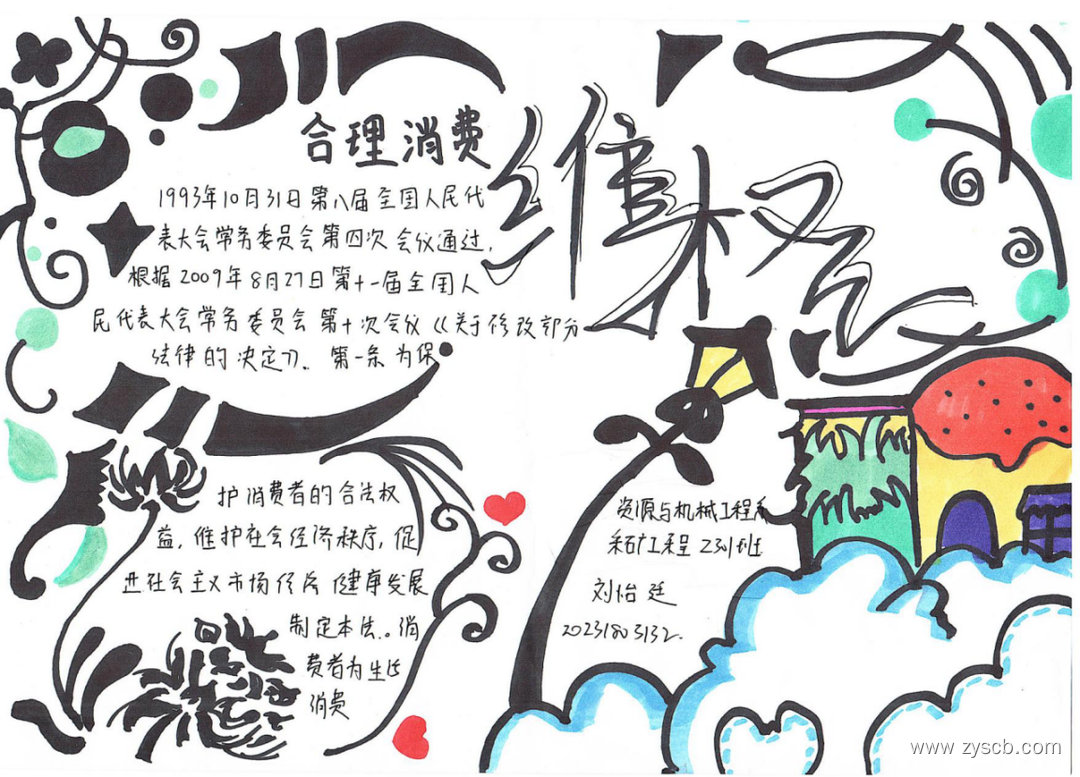 合理消费
维权
1993年10月31日第八届全国人民代
表大会常务委员会第四次会议通过,
根据2009年8月27日第十一届全国人
民代表大会常务委员会第十次会议《关于修改部分
法律的决定》. 第一条 为保
护消费者的合法权
益,维护社会经济秩序,促
进社会主义市场经济健康发展
制定本法。消
费者为生活
消费
资源与机械工程系
工程2231班
刘怡廷
20231803132.
www.zyscb.com